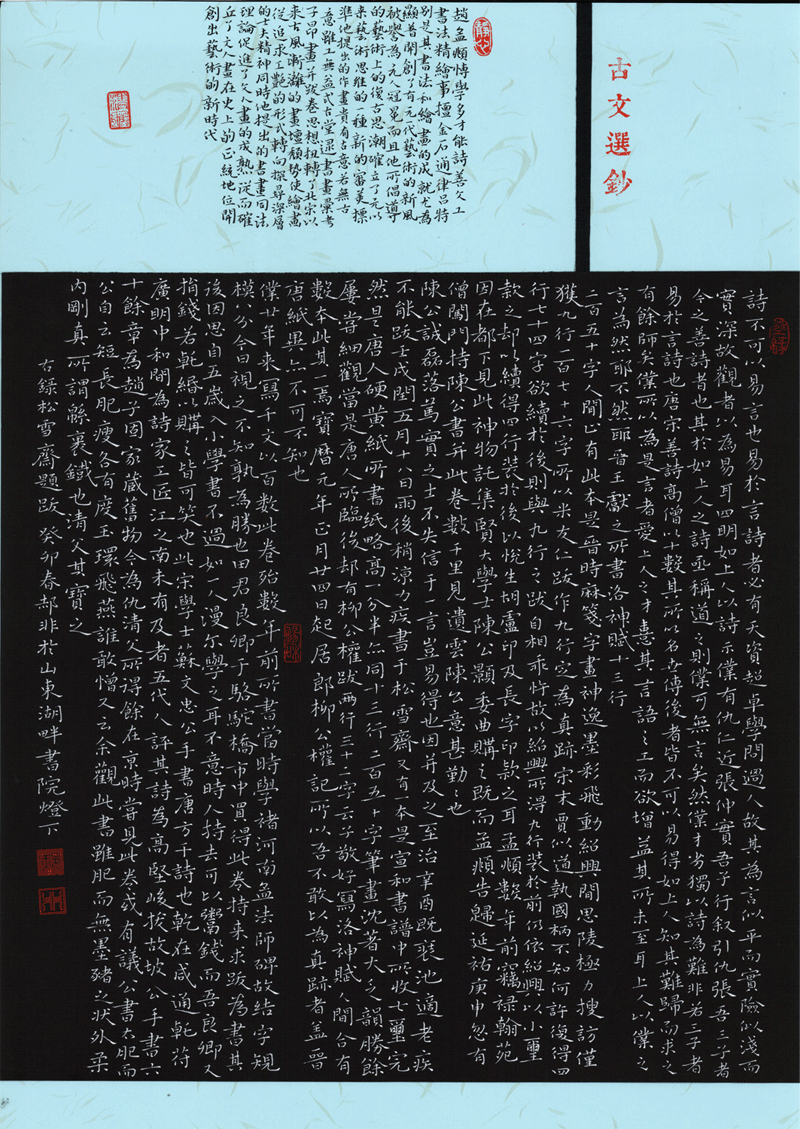 古文選鈔
趙孟頫博學多才能詩善文工
書法精繪事擅金石通律呂特
別是其書法和繪畫的成就尤為
顯著開創了有元代藝術的新風
被譽為元人冠冕而且他所倡導
的藝術上的復古思潮確立了元以
來藝術思維的一種新的審美標
準他提出的作畫貴有古意若無古
意雖工無益式古堂書畫彙考
子昂畫并跋卷思想扭轉了北宋以
來古風漸離的畫壇頹勢使繪畫
從追求工艷的形式轉向探尋深層
的士夫精神同時他提出的書畫同法
理論促進了文人畫的成熟從而確
立了文人畫在史上的正統地位開
創出藝術的新時代
詩不可以易言也易於言詩者必有天資超卓學問過人故其為言似平而實險似淺而
實深故觀者以為易耳四明如上人以詩僕有仇仁近張仲實吾子行叙引仇張吾三子者
今之善詩者也其於如上人之詩亟稱道之則僕可無言矣然僕才劣獨以詩為難非若三子者
易於言詩也唐宋善詩高僧以十數其所以名世傳後者皆不可以易得如上人知其難歸而求之
有餘師矣僕所以為是言者愛上人之才惠其言語之工而欲增益其所未至耳上人以僕之
言為然耶不然耶晉王獻之所書洛神賦十三行
二百五十字人間止有此本是晉時麻箋字畫神逸墨彩飛動紹興間思陵極力搜訪僅
獲九行一百七十六字所以米友仁跋作九行定為真跡宋末賈似道執國柄不知何許復得四
行七十四字欲續於後則與九行之跋自相乖忤故以紹興所得九行裝於前仍依紹興以小璽
款之却以續得四行裝於後以悅生胡盧印及長字印款之耳孟頫數年前竊祿翰苑
因在都下見此神物託集賢大學士陳公顥委曲購之既而孟頫告歸延祐庚申忽有
僧闖門持陳公書并此卷數千里見遺雲陳公意甚勤之也
陳公誠磊落篤實之士不失信于一言豈易得也因并及之至治辛酉既裝池適老疾
不能跋壬戌閏五月十八日雨後稍涼力疾書于松雪齋又有一本是宣和書譜中所收七璽完
然是唐人硬黃紙所書紙略高一分半同十三行二百五十字筆畫沈著大乏韻勝餘
屢嘗細觀當是唐人所臨後却有柳公權跋兩行三十二字云子敬好寫洛神賦人間合有
數本此其一焉寶曆元年正月廿四日起居郎柳公權記所以吾不敢以為真跡者蓋晉
唐紙異亦不可不知也
僕廿年來寫千文以百數此卷殆數年前所書當時學褚河南孟法師碑故結字規
模八分今日視之不知孰為勝也田君良卿于駱駝橋市中買得此卷持來求跋為書其
後因思自五歲入小學書不過如一人漫爾學之耳不意時人持去可以鬻錢而吾良卿又
捐錢若乾緡以購之皆可笑也此宋學士蘇文忠公手書唐方干詩也乾在咸通乾符
廣明中和間為詩家工匠江之南未有及者五代人評其詩為高堅峻拔故坡公手書六
十餘章為趙子固家藏舊物今為仇清父所得餘在京時嘗見此卷或有議公書太肥而
公自云短長肥瘦各有度玉環飛燕誰敢憎又云余觀此書雖肥而無墨豬之狀外柔
內剛真所謂緜裏鐵也清父其寶之
右錄松雪齋題跋癸卯春郝非於山東湖畔書院燈下